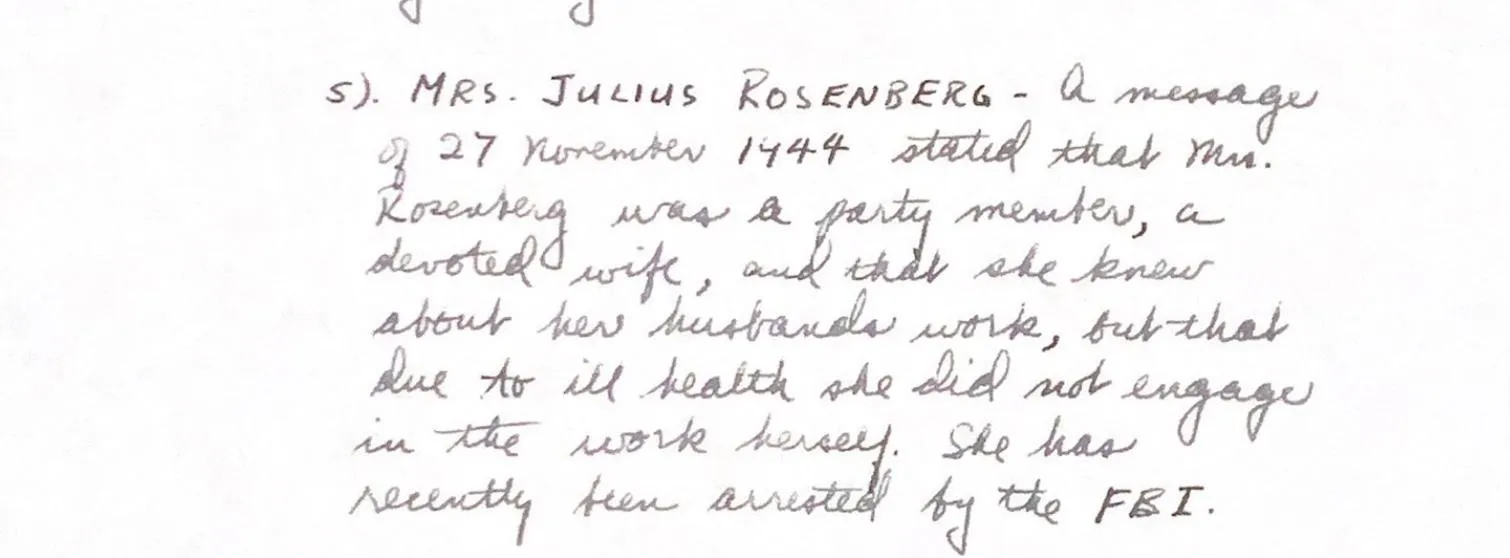 5). MRS. JULIUS ROSENBERG - A message
of 27 November 1944 stated that Mrs.
Rosenberg was a party member, a
devoted wife, and that she knew
about her husbands work, but that
due to ill health she did not engage
in the work herself. She has
recently been arrested by the FBI.